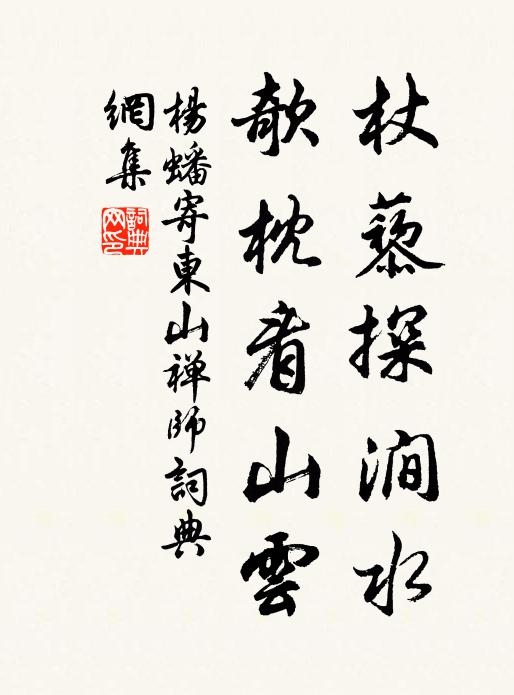 杖藜探澗水
欹枕看山雲
楊蟠寄東山禅師詞典
網集
詞典
网印